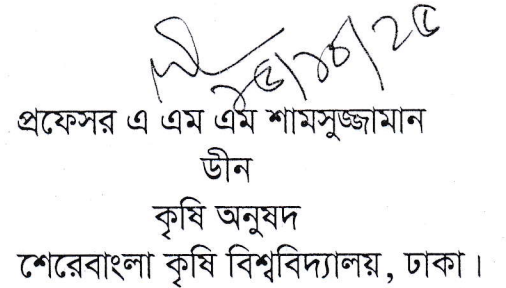 ২৫/১০/২৫
প্রফেসর এ এম এম শামসুজ্জামান
ডীন
কৃষি অনুষদ
শেরেবাংলা কৃষি বিশ্ববিদ্যালয়, ঢাকা।